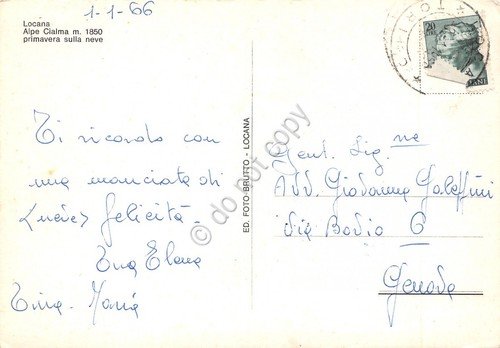 1-1-66
Locana
Alpe Cialma m. 1850
primavera sulla neve
Ti ricordo con
una manciata di
felicità.
Tua Elena
Tina - Maria
ED. FOTO-BRUTTO - LOCANA
20
Gent. Sig.na
Avv. Giovanna Galeffini
Via Bodio 6
Genova
do not copy